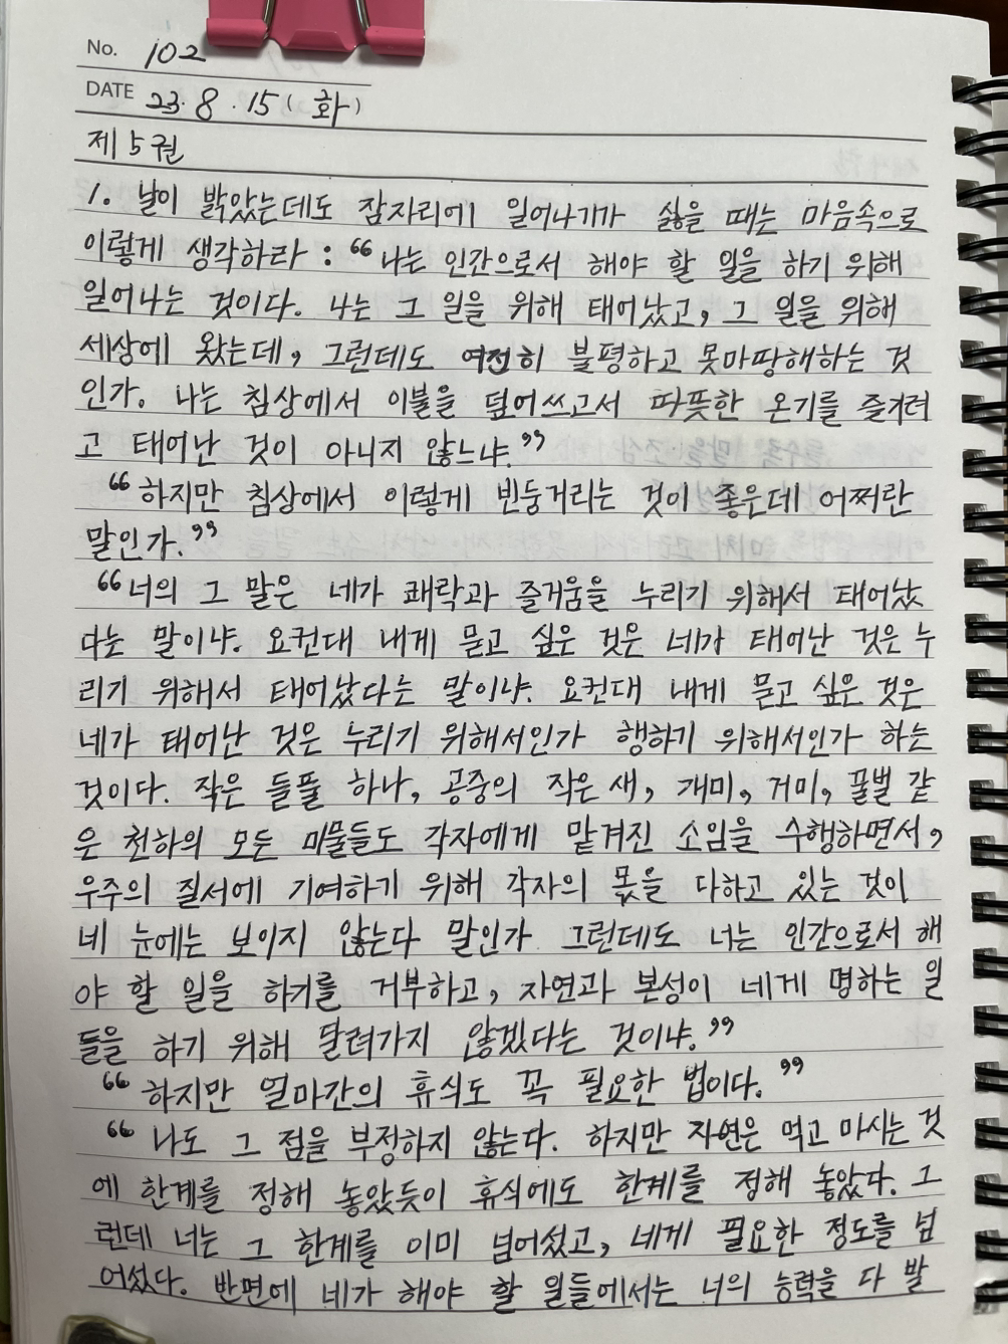 No. 102
DATE 23. 8. 15 ( 화 )
제 5권
1. 날이 밝았는데도 잠자리에 일어나기가 싫을 때는 마음속으로
이렇게 생각하라 : “나는 인간으로서 해야 할 일을 하기 위해
일어나는 것이다. 나는 그 일을 위해 태어났고, 그 일을 위해
세상에 왔는데, 그런데도 여전히 불평하고 못마땅해하는 것
인가. 나는 침상에서 이불을 덮어쓰고서 따뜻한 온기를 즐기려
고 태어난 것이 아니지 않느냐.”
“하지만 침상에서 이렇게 빈둥거리는 것이 좋은데 어쩌란
말인가.”
“너의 그 말은 네가 쾌락과 즐거움을 누리기 위해서 태어났
다는 말이냐. 요컨대 내게 묻고 싶은 것은 네가 태어난 것은 누
리기 위해서 태어났다는 말이냐. 요컨대 내게 묻고 싶은 것은
네가 태어난 것은 누리기 위해서인가 행하기 위해서인가 하는
것이다. 작은 들풀 하나, 공중의 작은 새, 개미, 거미, 꿀벌 같
은 천하의 모든 미물들도 각자에게 맡겨진 소임을 수행하면서,
우주의 질서에 기여하기 위해 각자의 몫을 다하고 있는 것이
네 눈에는 보이지 않는다 말인가 그런데도 너는 인간으로서 해
야 할 일을 하기를 거부하고, 자연과 본성이 네게 명하는 일
들을 하기 위해 달려가지 않겠다는 것이냐.”
“하지만 얼마간의 휴식도 꼭 필요한 법이다.”
“나도 그 점을 부정하지 않는다. 하지만 자연은 먹고 마시는 것
에 한계를 정해 놓았듯이 휴식에도 한계를 정해 놓았다. 그
런데 너는 그 한계를 이미 넘어섰고, 네게 필요한 정도를 넘
어섰다. 반면에 네가 해야 할 일들에서는 너의 능력을 다 발